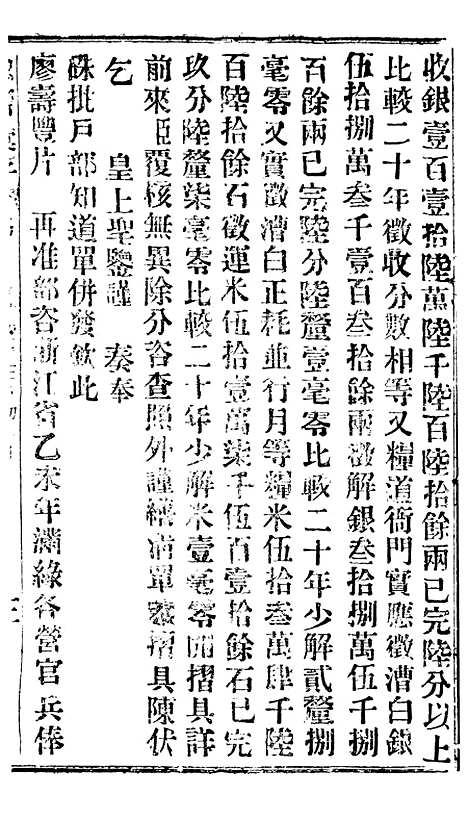 收銀壹百壹拾陸萬陸千陸百陸拾餘兩已完陸分以上
比較二十年徵收分數相等又糧道衙門實應徵漕白銀
伍拾捌萬叁千壹百叁拾餘兩徵解銀叁拾捌萬伍千捌
百餘兩已完陸分陸釐壹毫零比較二十年少解貳釐捌
毫零又實徵漕白正耗並行月等糧米伍拾叁萬肆千陸
百陸拾餘石徵運米伍拾壹萬柒千伍百壹拾餘石已完
玖分陸釐柒毫零比較二十年少解米壹毫零開摺具詳
前來臣覆核無異除分咨查照外謹繕清單恭摺具陳伏
乞 皇上聖鑒謹 奏奉
硃批戶部知道單併發欽此
廖壽豐片 再准部咨浙江省乙未年滿綠各營官兵俸